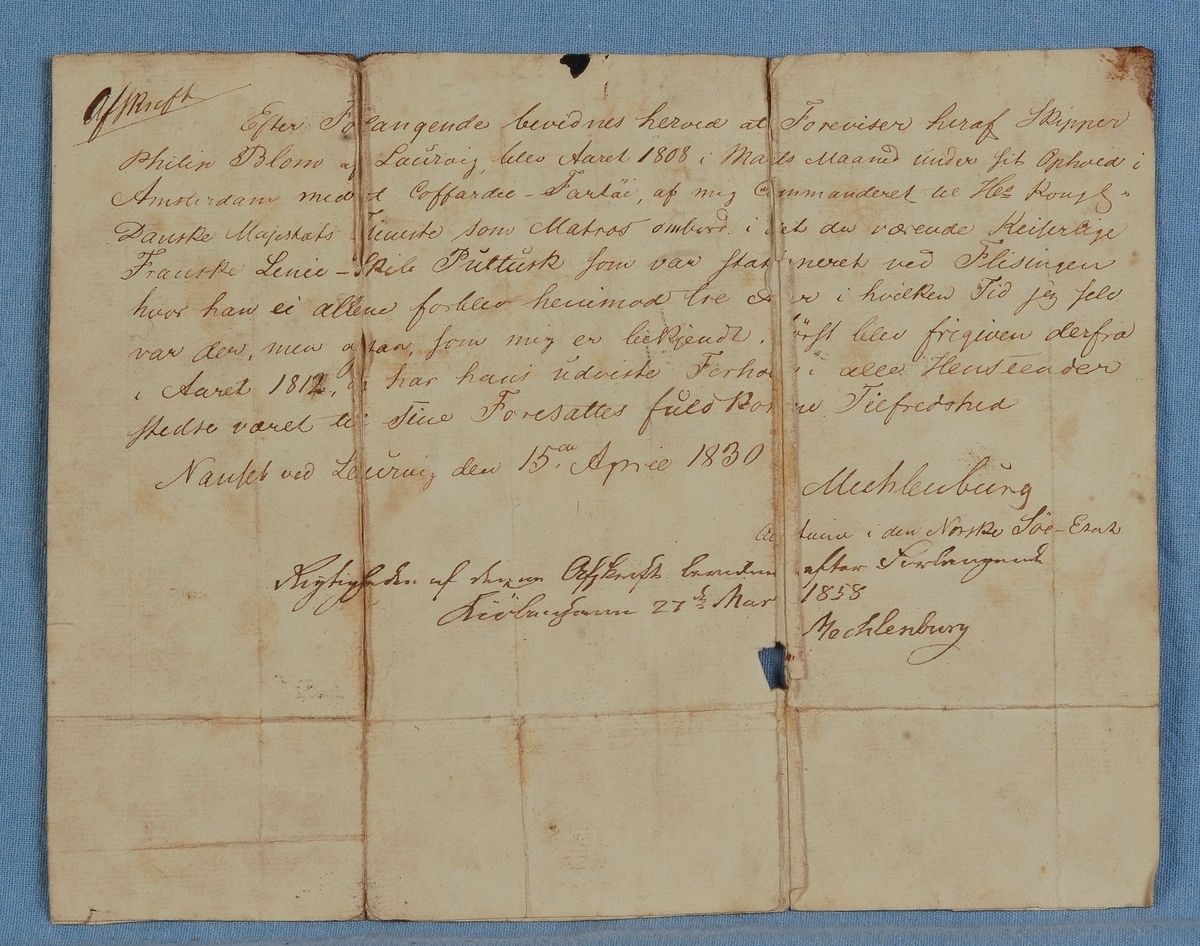 Afskrift
Efter Forlangende bevidnes herved at Foreviser heraf Skipper
Philip Blom af Laurvig, blev Aaret 1808 i Marts Maaned under sit Ophold i
Amsterdam med et Coffardie-Fartöi, af mig Commanderet til Hs Kongl
Danske Majestæts Tieneste som Matros ombord i det da værende Keiserlige
Franske Linie-Skib Pultusk som var stationeret ved Flisingen
hvor han ei allene forblev henimod tre Aar i hvilken Tid jeg selv
var der, men og han, som mig er bekjendt, först blev frigiven derfra
i Aaret 1812, og har hans udviste Forhold i alle Henseender
stedse været til Sine Foresattes fuldkomne Tilfredshed
Nanset ved Laurvig den 15de April 1830
Mechlenburg
Capitaine i den Norske Söe-Etat
Rigtigheden af denne Afskrift bevidnes efter Forlangende
Kiöbenhavn 27de Mar 1858
Mechlenburg